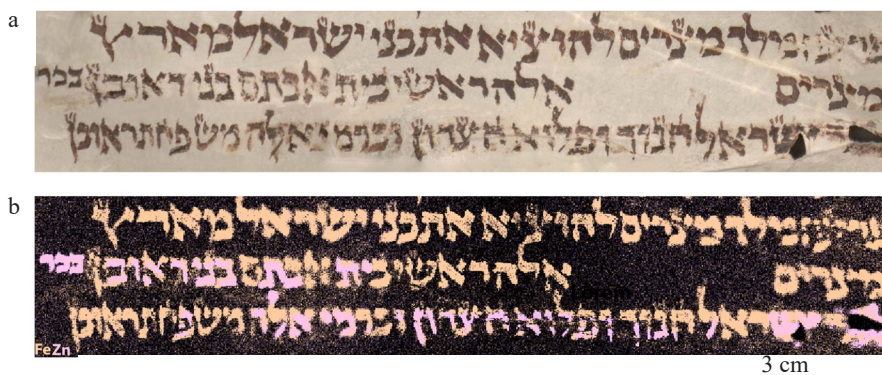 a
פרעה מלך מצרים להוציא את בני ישראל מארץ
מצרים אלה ראשי בית אבתם בני ראובן בכר
ישראל חנוך ופלוא חצרון וכרמי אלה משפחת ראובן
b
פרעה מלך מצרים להוציא את בני ישראל מארץ
מצרים אלה ראשי בית אבתם בני ראובן בכר
ישראל חנוך ופלוא חצרון וכרמי אלה משפחת ראובן
FeZn
3 cm